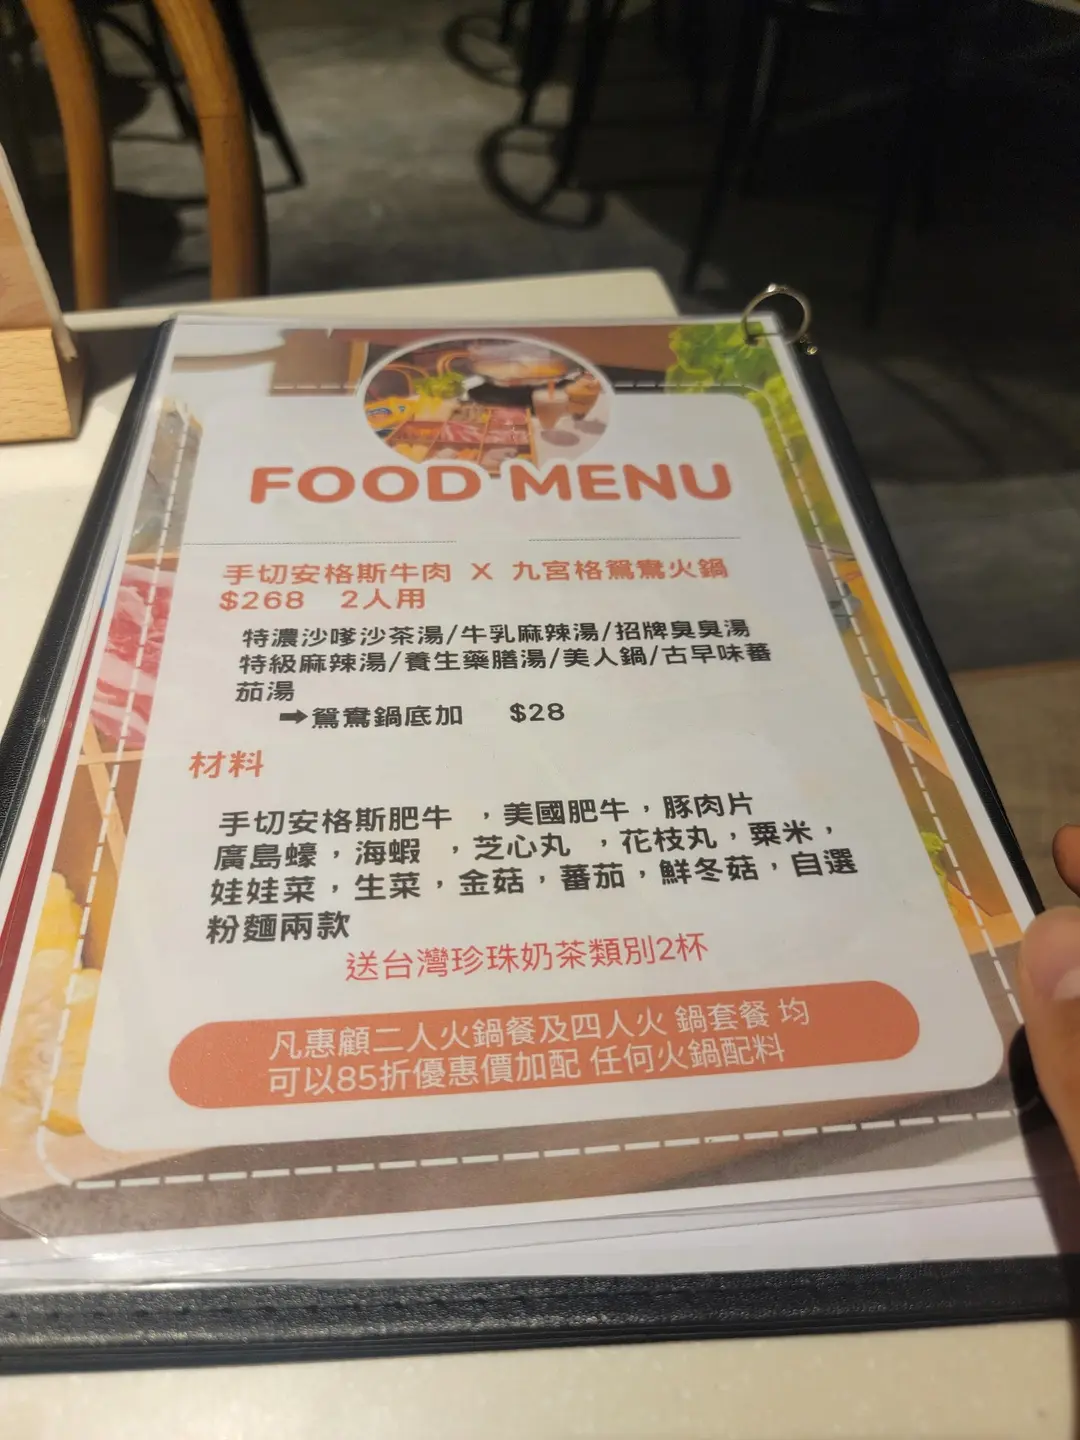 FOOD MENU
手切安格斯牛肉 X 九宮格鴛鴦火鍋
$268 2人用
特濃沙嗲沙茶湯/牛乳麻辣湯/招牌臭臭湯
特級麻辣湯/養生藥膳湯/美人鍋/古早味蕃
茄湯
➡鴛鴦鍋底加 $28
材料
手切安格斯肥牛 ，美國肥牛，豚肉片
廣島蠔，海蝦 ，芝心丸 ，花枝丸，粟米，
娃娃菜，生菜，金菇，蕃茄，鮮冬菇，自選
粉麵兩款
送台灣珍珠奶茶類別2杯
凡惠顧二人火鍋餐及四人火 鍋套餐 均
可以85折優惠價加配 任何火鍋配料